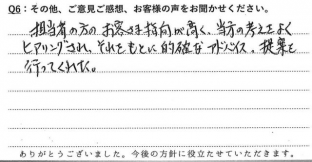 Q6：その他、ご意見ご感想、お客様の声をお聞かせください。
担当者の方のお客さま指向が高く、当方の考えをよく
ヒアリングされ、それをもとに的確なアドバイス、提案を
行ってくれた。
ありがとうございました。今後の方針に役立たせていただきます。